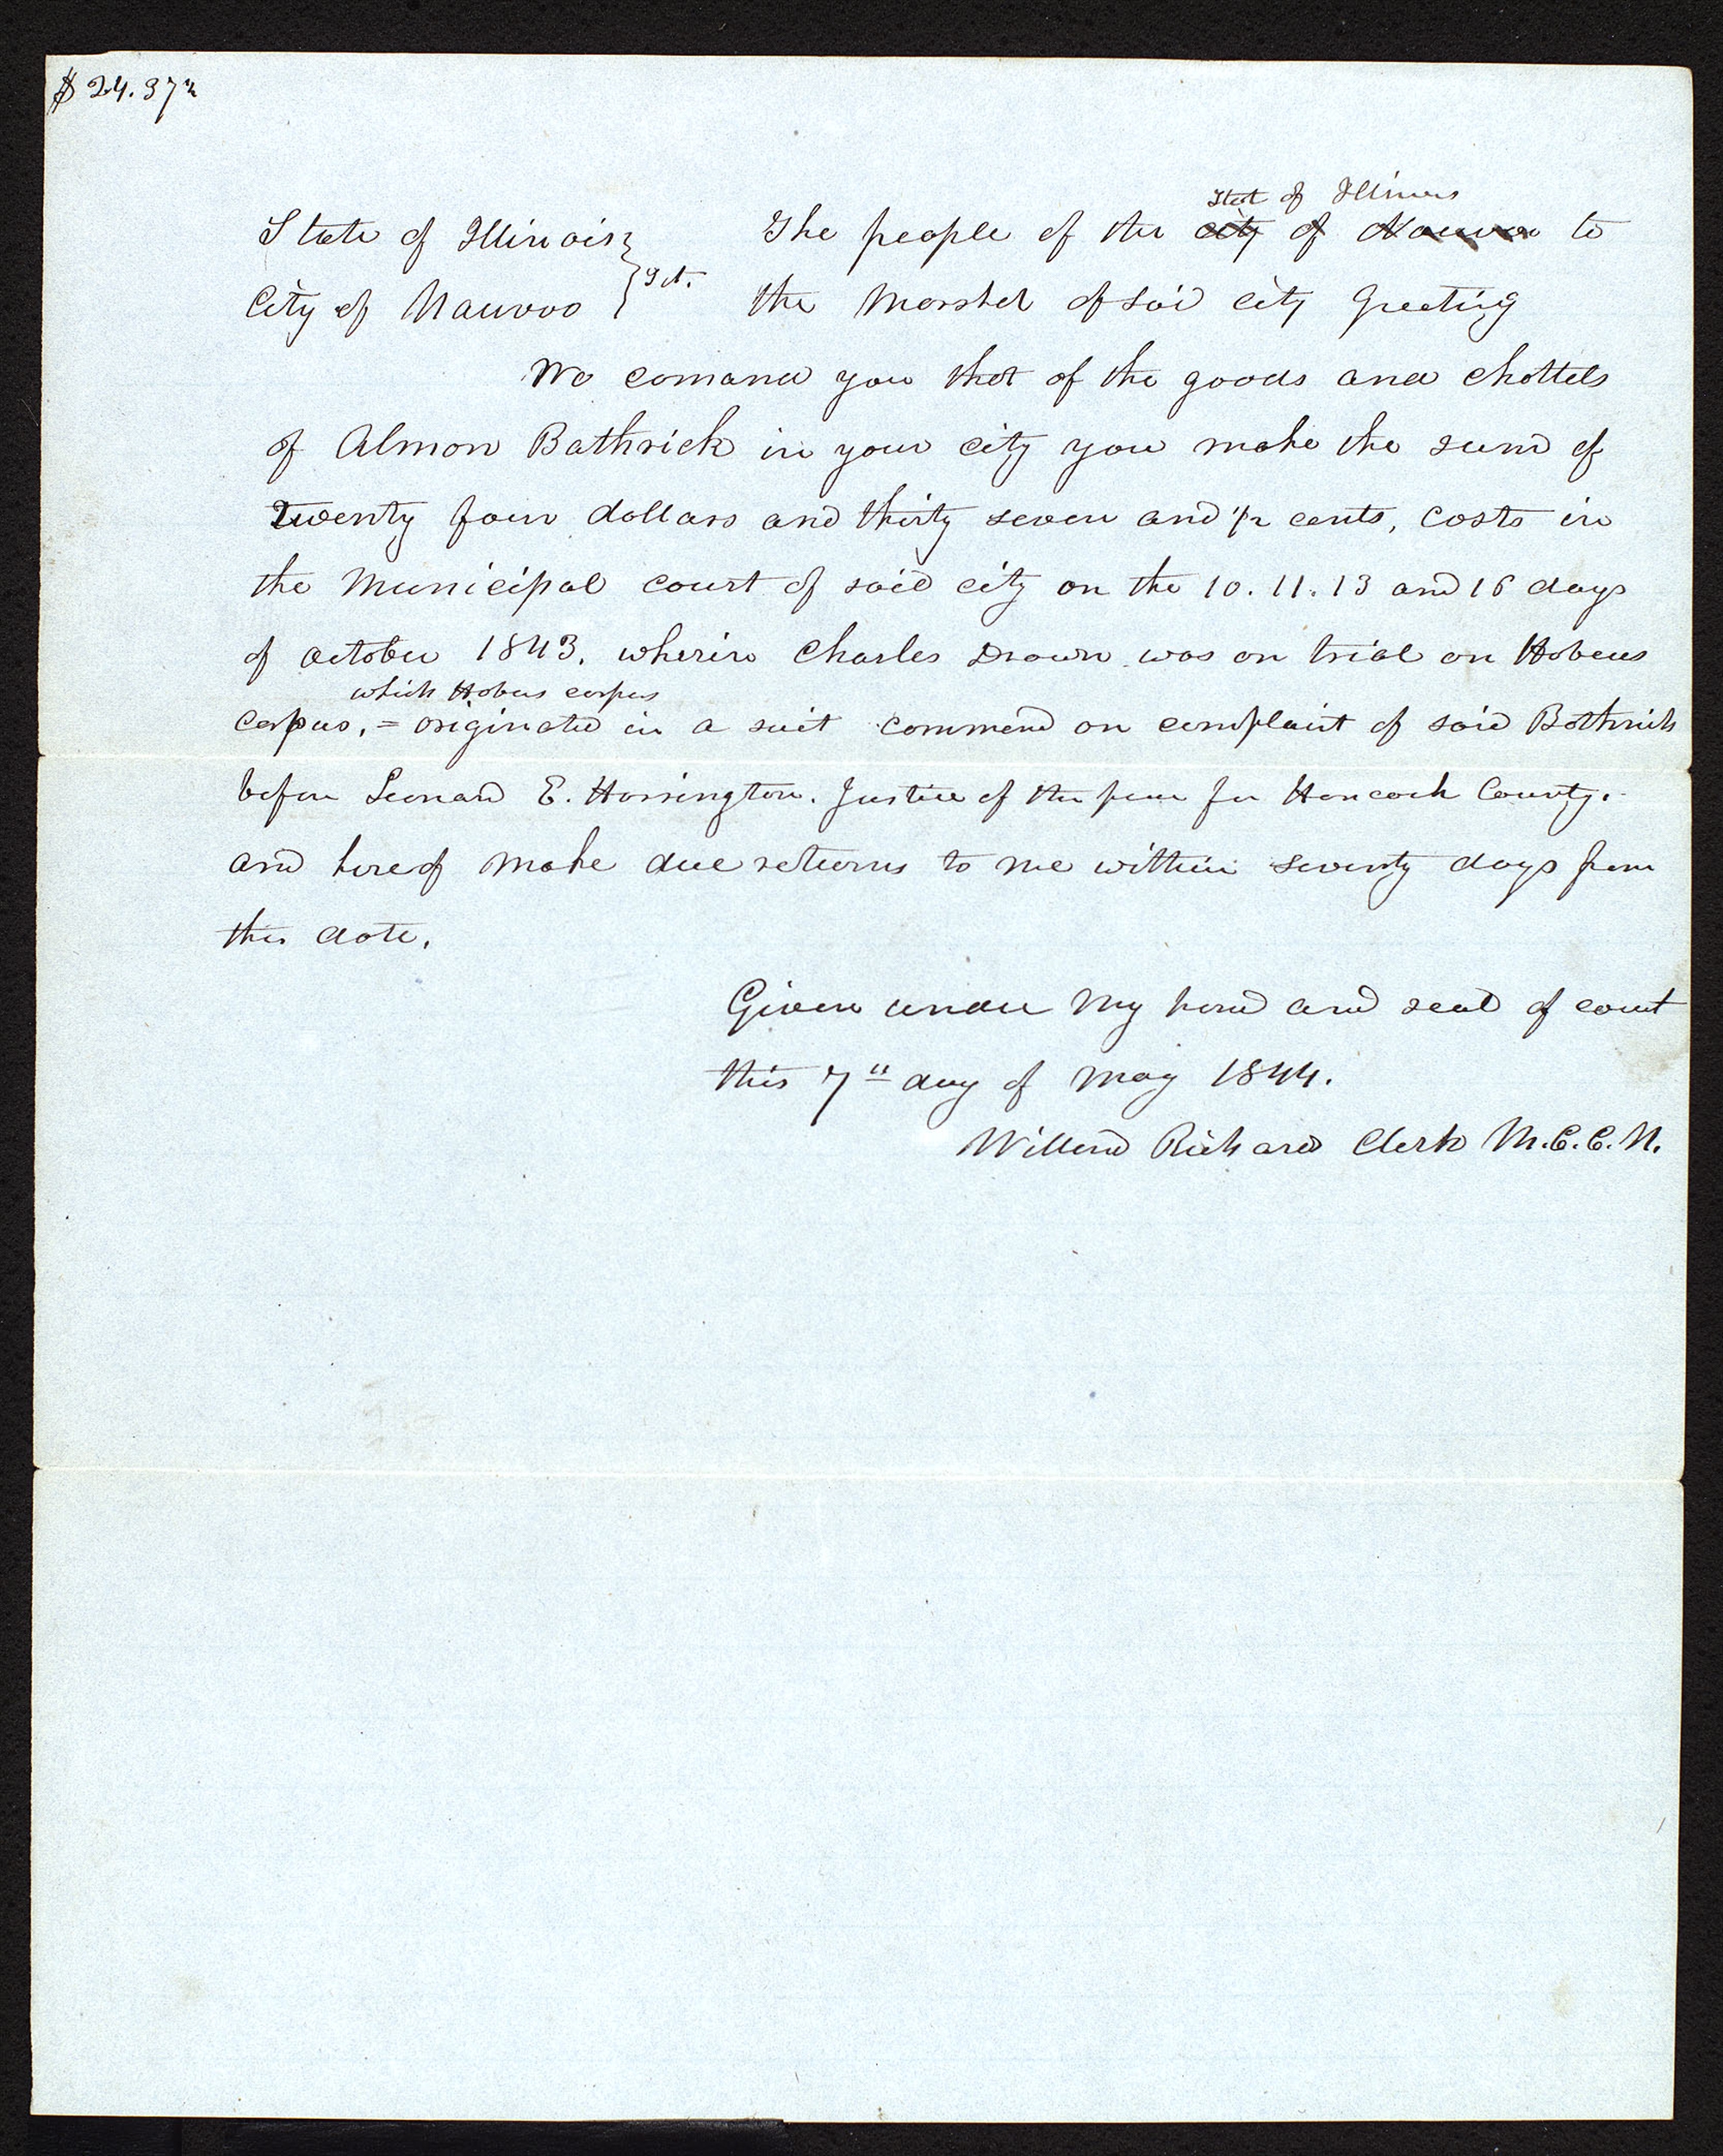 $24.37½
State of Illinois } The people of the State of Illinois city of Nauvoo to
City of Nauvoo } Sct. the Marshal of said city Greeting
We comand you that of the goods and chattels
of Almon Bathrick in your city you make the sum of
Twenty four dollars and thirty seven and 1/2 cents, costs in
the Municipal court of said city on the 10. 11. 13 and 16 days
of October 1843. wherein Charles Drown was on trial on Habeus
which Habeus corpus
Corpus, = originated in a suit commend on complaint of said Bathrick
before Leonard E. Harrington. Justice of the peace for Hancock County.
and hereof make due returns to me within seventy days from
this date.
Given under my hand and seal of court
this 7th day of May 1844.
Willard Richards Clerk M.C.C.N.